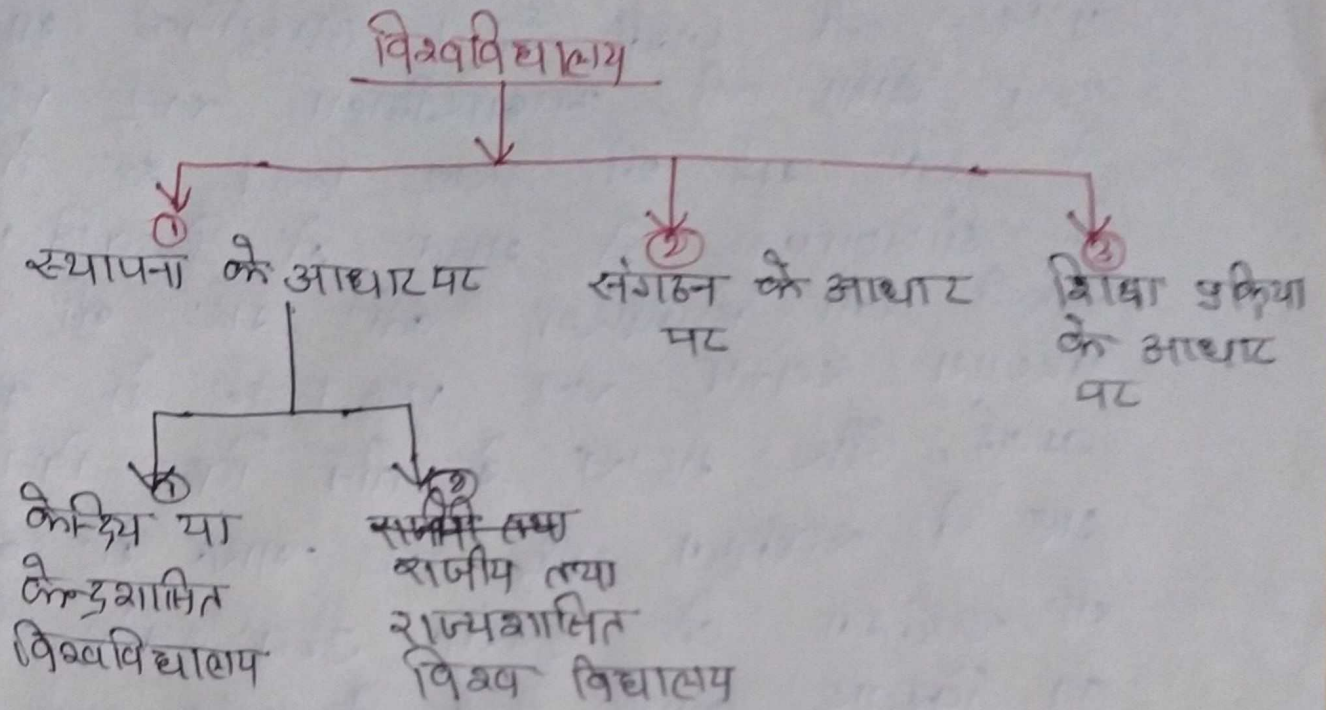 विश्वविद्यालय
① ② ③
स्थापना के आधार पर
संगठन के आधार
पर
शिक्षा प्रक्रिया
के आधार
पर
①
केन्द्रिय या
केन्द्रशासित
विश्वविद्यालय
②
राजीय तथा
राज्यशासित
विश्व विद्यालय